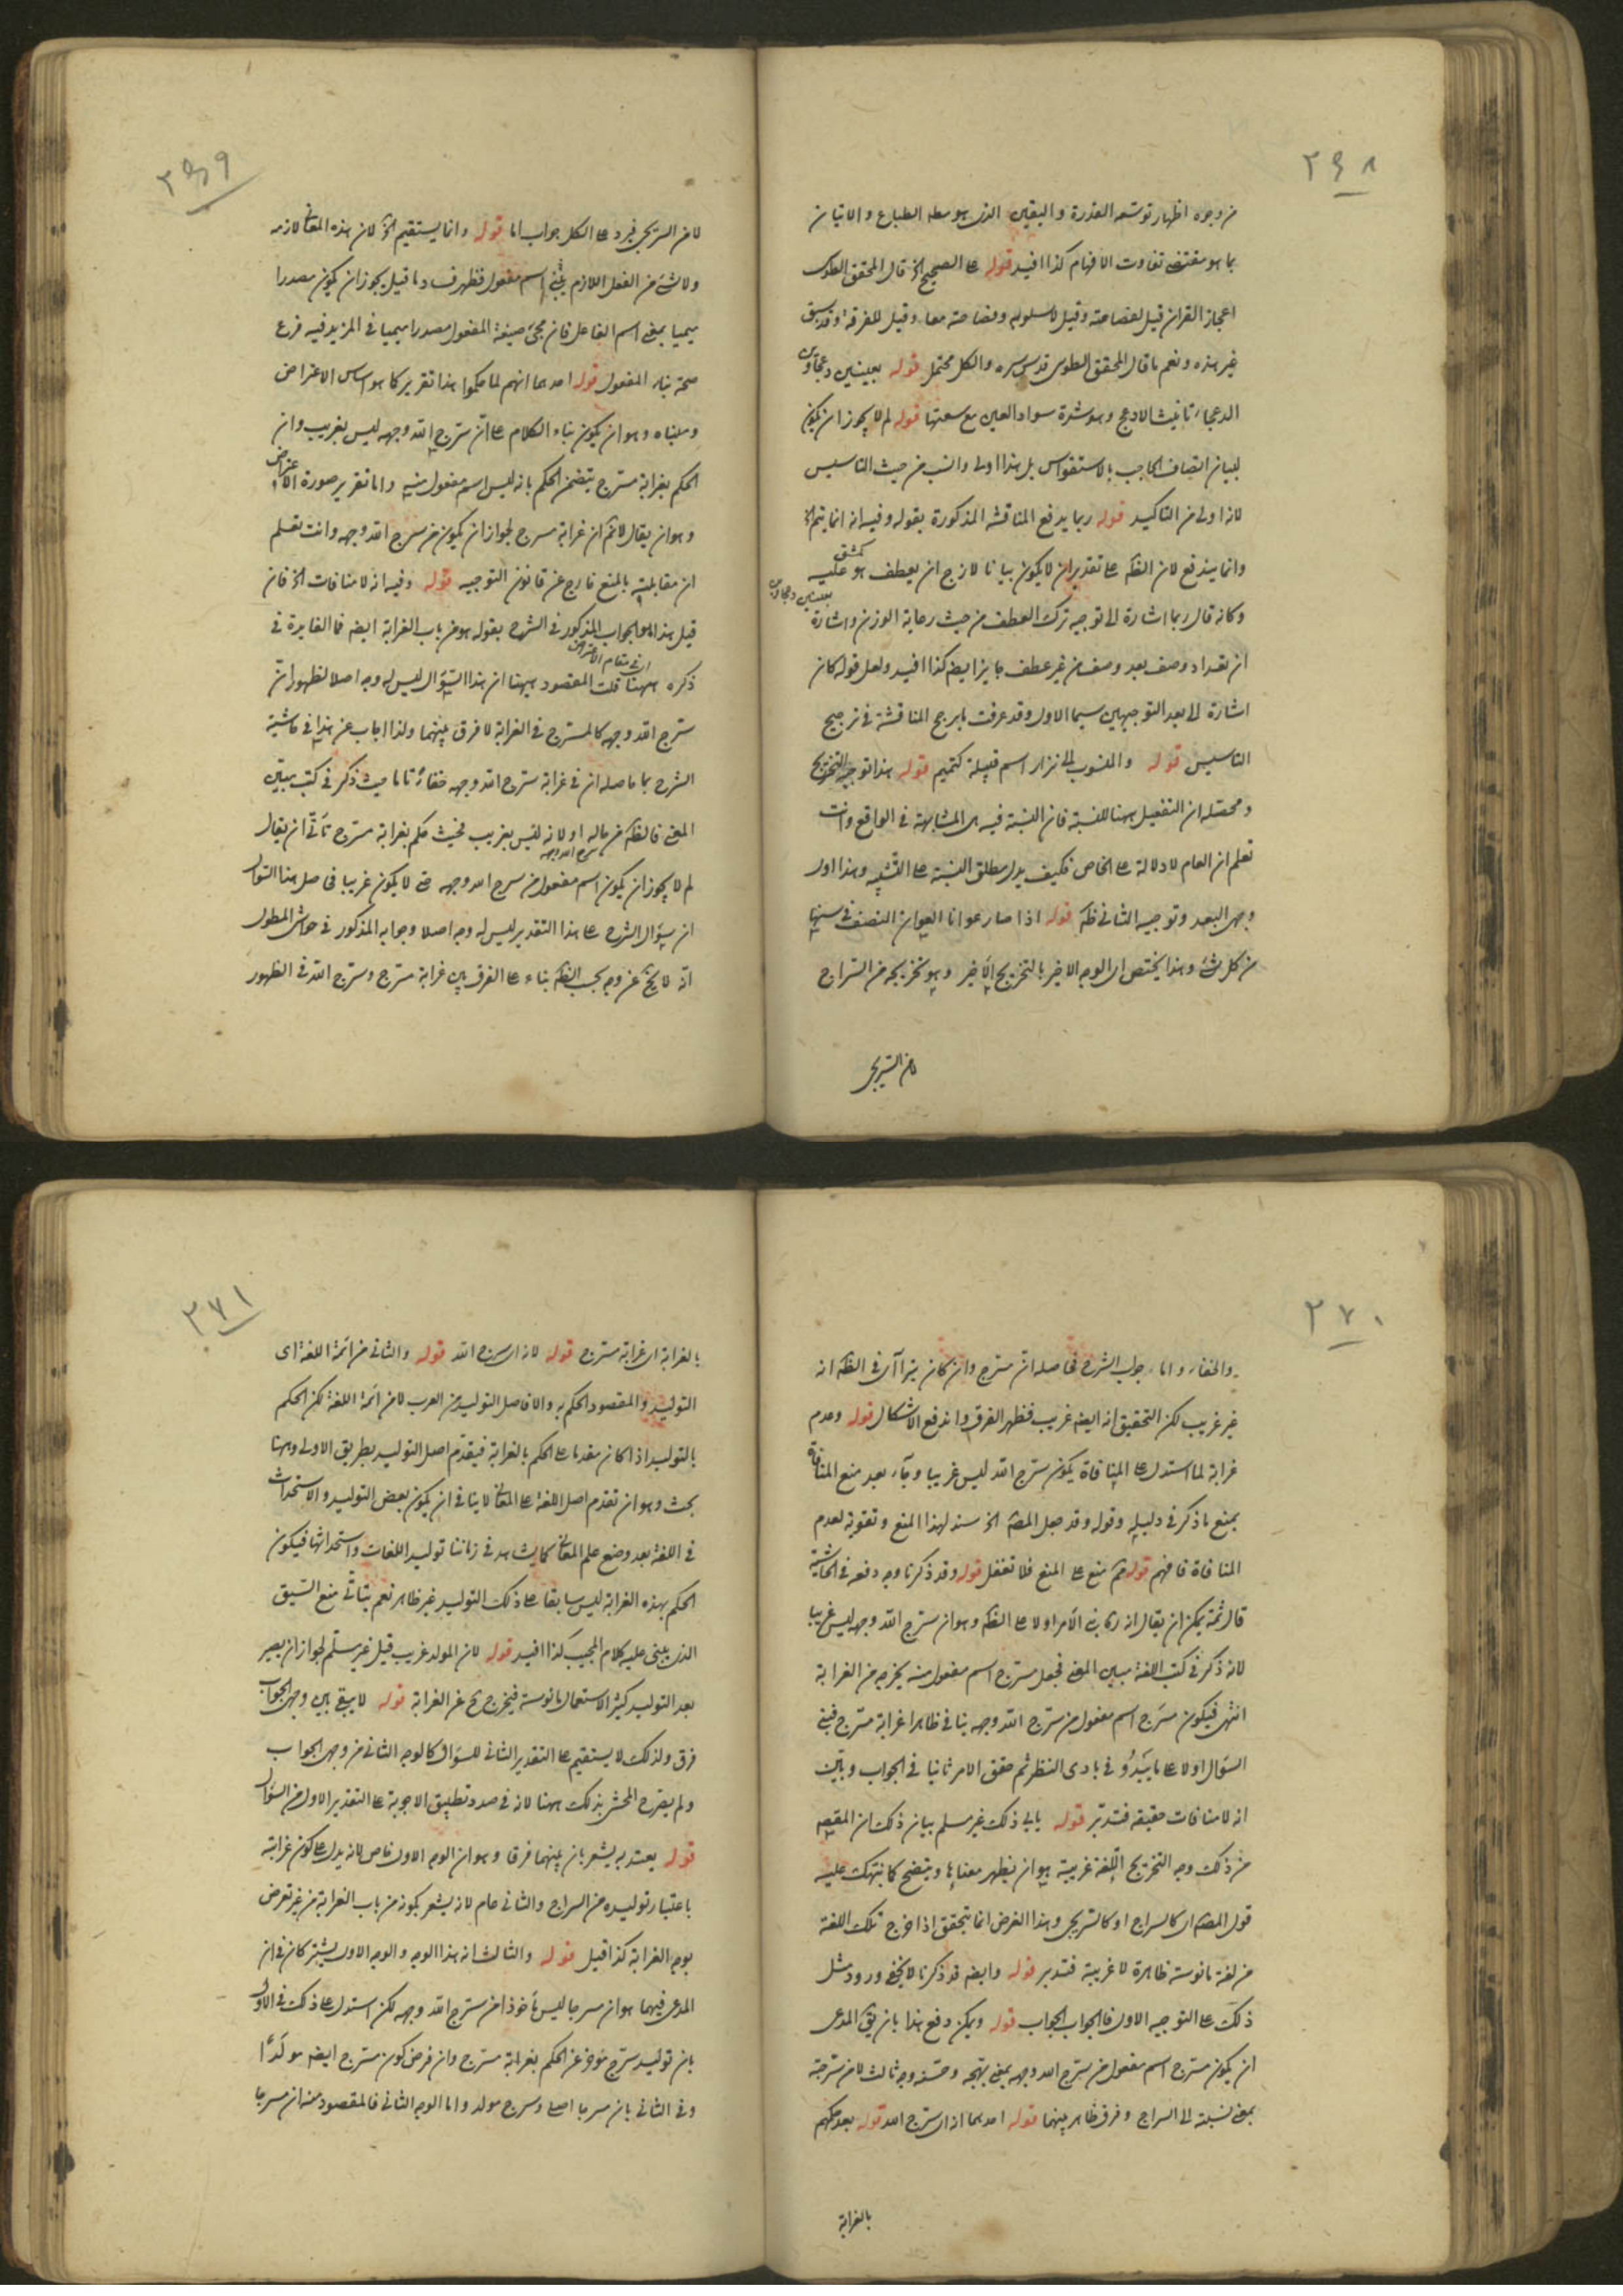 ٢٦٨
من وجوه اظهار توسعه القدرة والیقین الذی هو وسطه الطباع والاتیان
بما هو مقتضی تفاوت الافهام کذا افید قوله علی الصحیح الخ قال المحقق الطوسی
اعجاز القران قیل لفصاحته وقیل لاسلوبه وفصاحته معا وقیل للصرفة وقد سبق
غیر هذه ونعم ما قال المحقق الطوسی قدس سره والکل محتمل قوله بعینین دعجاوین
الدعجاء تانیث الادعج وهو شدة سواد العین مع سعتها قوله لم لا یجوز ان یکون
لبیان اتصاف الحاجب بالاستقواس بل هذا اولی وانسب من حیث التاسیس
لانه اولی من التاکید قوله ربما یدفع المناقشة المذکورة بقوله وفیه انه انما یتم الخ
وانما یندفع لان الظه علی تقدیر ان لا یکون بیانا لازج ان یعطف هو علیه
وکانه قال ربما اشارة الی توجیه ترک العطف من حیث رعایة الوزن واشارة
ان تعداد وصف بعد وصف من غیر عطف جایز ایضا کذا افید ولعل قوله کان
اشارة الی بعد التوجیهین سیما الاول وقد عرفت ما یرجح المناقشة فی ترجیح
التاسیس قوله والمنسوب الی نزار اسم قبیلة کتمیم قوله هذا توجیه التخریج
ومحصله ان التفعیل ههنا للنسبة فان النسبة فیه هی المشابهة فی الواقع وانت
تعلم ان العام لا دلالة علی الخاص فکیف یدل مطلق النسبة علی التشبیه وهذا اول
وجهی البعد وتوجیه الثانی ظه قوله اذا صار عوانا العوان النصف فی سنها
من کل شیء وهذا یختص ای الوجه الاخیر بالتخریج الاخیر وهو تخریجه من السراج
لان السریجی
٢٦٩
لان السریجی فیرد علی الکل جواب اما قوله وانما یستقیم الخ لان هذه المعانی لازمه
ولا شیء من الفعل اللازم یبنی اسم مفعول فظهر ف وما قیل یجوز ان یکون مصدرا
میمیا بمعنی اسم الفاعل فان مجیء صیغة المفعول مصدرا میمیا فی المزید فیه فرع
صحة بناء المفعول قوله احدهما انهم لما حکموا هذا تقریر کما هو اساس الاعتراض
ومبناه وهو ان یکون بناء الکلام علی ان سرج الله وجهه لیس بغریب وان
الحکم بغرابة مسرج یتضمن الحکم بانه لیس اسم مفعول منه واما تقریر صورة الاعتراض
وهو ان یقال لا نم ان غرابة مسرج لجواز ان یکون من سرج الله وجهه وانت تعلم
ان مقابلته بالمنع خارج عن قانون التوجیه قوله وفیه انه لا منافات الخ فان
قیل هذا هو الجواب المذکور فی الشرح بقوله هو من باب الغرابة ایضا فما الفایدة فی
ذکره ههنا قلت المقصود ههنا ان هذا السؤال لیس له وجه اصلا لظهور ان
سرج الله وجهه کالمسرج فی الغرابة لا فرق بینهما ولذا اجاب عن هذا فی حاشیة
الشرح بما حاصله ان فی غرابة سرج الله وجهه خفاءً تاما حیث ذکر فی کتب مبین
المعنی فالظه من حاله اولا انه لیس بغریب فحیث حکم بغرابة مسرج تأتّی ان یقال
لم لا یجوز ان یکون اسم مفعول من سرج الله وجهه حتی لا یکون غریبا فحاصل هذا السؤال
ان سؤال الشرح علی هذا التقدیر لیس له وجه اصلا وجوابه المذکور فی حواشی المطول
انه لا یخ عن وجه بحسب الظه بناء علی الفرق بین غرابة مسرج وسرج الله فی الظهور
٢٧٠
والخفاء واما جواب الشرح فحاصله ان مسرج وان کان یترآای فی الظه انه
غیر غریب لکن التحقیق انه ایضا غریب فظهر الفرق واندفع الاشکال قوله وعدم
غرابة لما استدل علی المنافاة بکون سرج الله لیس غریبا وجاء بعد منع المنافاة
بمنع ما ذکر فی دلیله وقوله وقد جعل المصه الخ سند لهذا المنع وتقویة لعدم
المنافاة فافهم قوله ثم منع علی المنع فلا تغفل قوله وقد ذکرنا وجه دفعه فی الحاشیة
قال ثمة یمکن ان یقال انه بنی الامر اولا علی الظه وهو ان سرج الله وجهه لیس غریبا
لانه ذکر فی کتب اللغة مبین المعنی فجعل مسرج اسم مفعول منه یخرجه من الغرابة
انتهی فیکون مسرج اسم مفعول من سرج الله وجهه ینافی ظاهرا غرابة مسرج فبنی
السؤال اولا علی ما یبدو فی بادی النظر ثم حقق الامر ثانیا فی الجواب وبین
انه لا منافات حقیقة فتدبر قوله یابی ذلک غیر مسلم بیان ذلک ان المقصه
من ذلک وجه التخریج اللغة غریبة هو ان یظهر معناها ویتضح کما نبهتک علیه
قول المصه ای کالسراج او کالسریجی وهذا الغرض انما یتحقق اذا خرج تلک اللغة
من لغة مانوسة ظاهرة لا غریبة فتدبر قوله وایضا قد ذکرنا لا یخفی ورود مثل
ذلک علی التوجیه الاول فالجواب الجواب قوله ویمکن دفع هذا بان یق المدعی
ان یکون مسرج اسم مفعول من سرج الله وجهه بمعنی بهجه وحسنه وجه ثالث لان سرجه
بمعنی نسبته الی السراج وفرق ظاهر بینهما قوله احدهما انه ای سرج الله قوله بعد حکمهم
بالغرابة
٢٧١
بالغرابة ای غرابة مسرج قوله لانه ای سرج الله قوله والثانی من ائمة اللغة ای
التولید والمقصود الحکم به والا فاصل التولید من العرب لان ائمة اللغة لکن الحکم
بالتولید اذا کان مقدما علی الحکم بالغرابة فیقدم اصل التولید بطریق الاولی وههنا
بحث وهو ان تقدم اصل اللغة علی المعانی لا ینافی ان یکون بعض التولید والاستحداث
فی اللغة بعد وضع علم المعانی کما یشاهد فی زماننا تولید اللغات واستحداثها فیکون
الحکم بهذه الغرابة لیس سابقا علی ذلک التولید غیر ظاهر نعم یتأتّی منع السبق
الذی یبنی علیه کلام المجیب کذا افید قوله لان المولد غریب قیل غیر مسلم لجواز ان یصیر
بعد التولید کثیر الاستعمال مانوسة فیخرج ح عن الغرابة قوله لا یبقی بین وجهی الجواب
فرق ولذلک لا یستقیم علی التقدیر الثانی للسؤال کالوجه الثانی من وجهی الجواب
ولم یصرح المحشی بذلک ههنا لانه فی صدد تطبیق الاجوبة علی التقدیر الاول من السؤال
قوله یعتد به یشعر بان بینهما فرقا وهو ان الوجه الاول خاص لانه یدل علی کون غرابته
باعتبار تولیده من السراج والثانی عام لانه یشعر بکونه من باب الغرابة من غیر تعرض
بوجه الغرابة کذا قیل قوله والثالث ان هذا الوجه والوجه الاول یشترکان فی ان
المدعی فیهما هو ان مسرجا لیس مأخوذا من سرج الله وجهه لکن استدل علی ذلک فی الاول
بان تولید سرج مؤخر عن الحکم بغرابة مسرج وان فرض کون مسرج ایضا مولّدا
وفی الثانی بان مسرجا اصلی وسرج مولد واما الوجه الثانی فالمقصود منه ان مسرجا